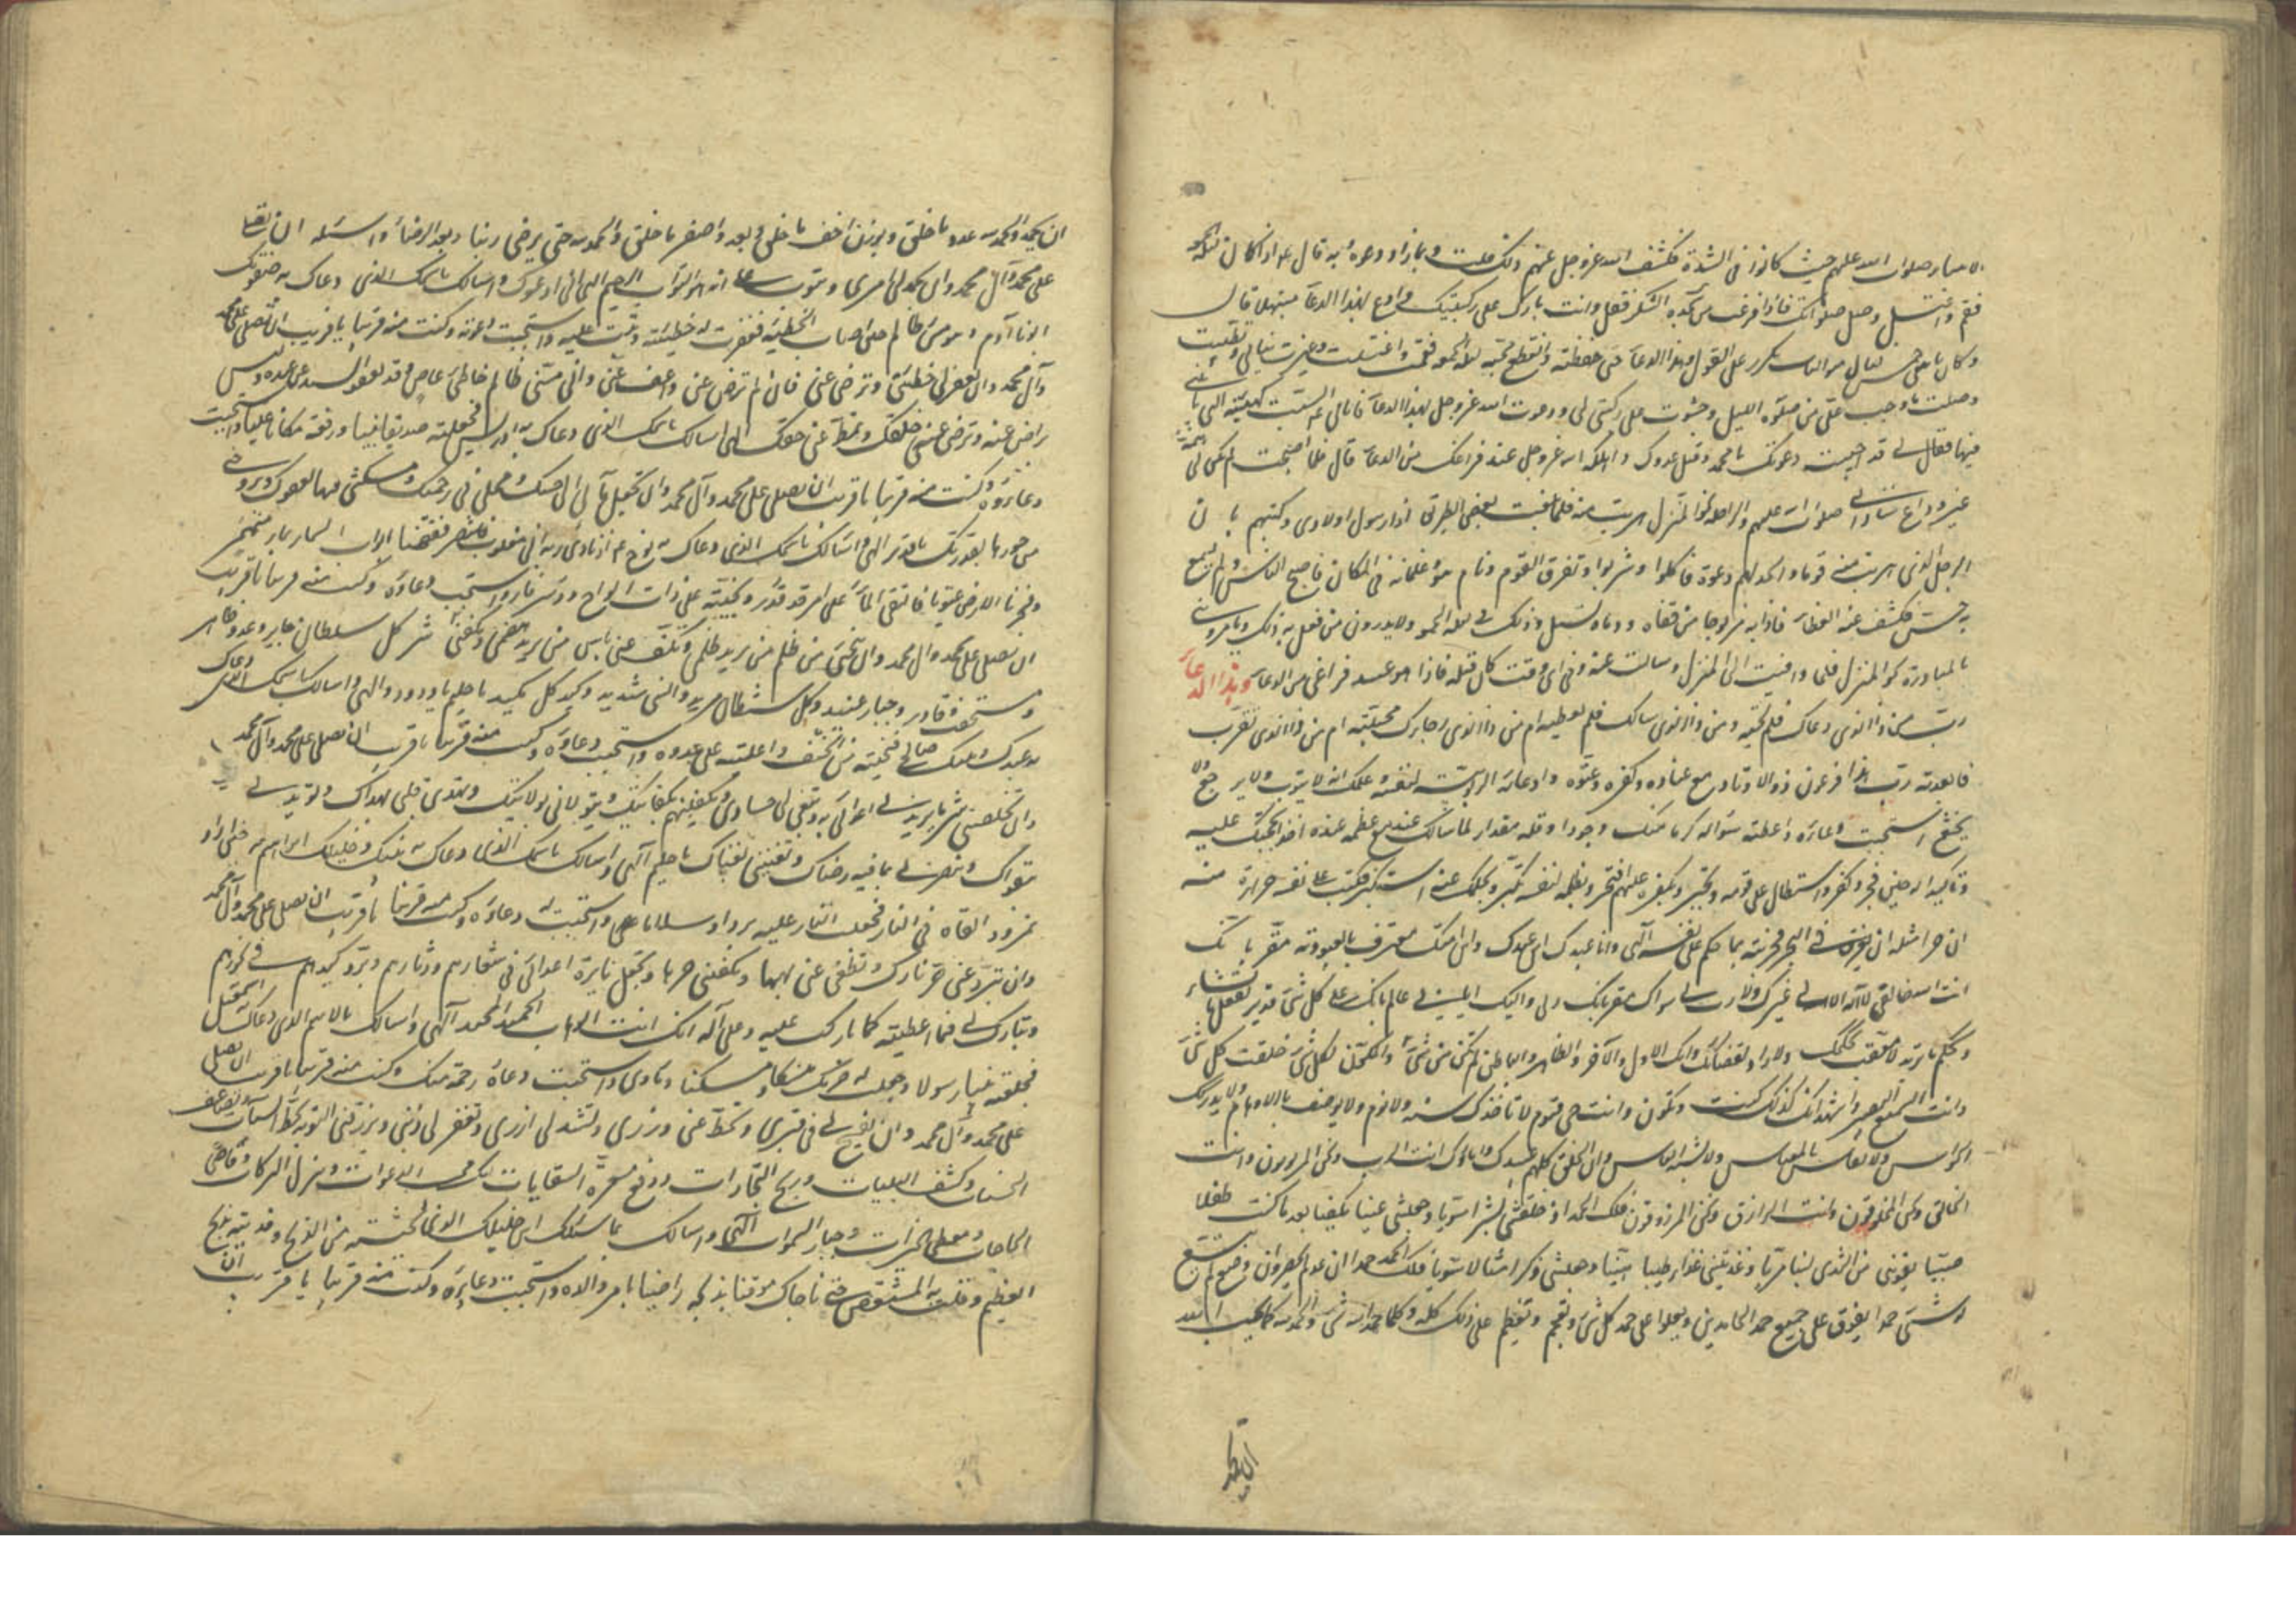 الانبياء صلوات الله عليهم حيث كانوا في الشدة فكشف الله عز وجل عنهم ذلك قلت وبماذا دعوه به قال ع اذا كان ليلة الجمعة
فقم واغتسل وصل صلواتك فاذا فرغت من سجدة الشكر فقل وانت بارك على ركبتيك وادع بهذا الدعاء مبتهلا قال
وكان يأتيني خمس ليال متواليات يكرر على القول وهذا الدعاء حتى حفظته وانقطع مجيئه ليلة الجمعة فقمت واغتسلت وغيرت ثيابي وتطيبت
وصليت ما وجب على من صلوة الليل وجثوت على ركبتي ودعوت الله عز وجل بهذا الدعاء فاتاني ع ليلة السبت كهيئته التي ياتيني
فيها فقال لي قد اجيبت دعوتك يا محمد وقتل عدوك واهلكه الله عز وجل عند فراغك من الدعاء قال فلما اصبحت لم يكن لي همة
غير وداع ساداتي صلوات الله عليهم والرحلة نحو المنزل هربت منه فلما بلغت بعض الطريق اذا رسول اولادي وكتبهم بان
الرجل الذي هربت منه قوما واتخذ لهم دعوة فاكلوا وشربوا وتفرق القوم ونام هو وغلمانه في المكان فاصبح الناس ولم يسمع
به حس فكشف عنه الغطاء فاذا به مذبوحا من قفاه ودماؤه تسيل وذلك في ليلة الجمعة ولا يدرون من فعل به ذلك ويأمروني
بالمبادرة نحو المنزل فلما وافيت الى المنزل وسالت عنه وفي اي وقت كان قتله فاذا هو عند فراغي من الدعاء وهذا الدعاء
رب من ذا الذي دعاك فلم تجبه ومن ذا الذي سالك فلم تعطه ام من ذا الذي رجاك فخيبته ام من ذا الذي تقرب
فابعدته رب هذا فرعون ذو الاوتاد مع عناده وكفره وعتوه وادعائه الربوبية لنفسه وعلمك انه لا يتوب ولا يرجع ولا
يخشع استجبت دعاءه واعطيته سؤاله كرما منك وجودا وقلة مقدار لما سالك عندك مع عظمه عنده اخذا بحجتك عليه
وتاكيدا لها حين فجر وكفر واستطال على قومه وتجبر وبكفره عليهم افتخر وبظلمه لنفسه تكبر وبحلمك عنه استكبر فكتب على نفسه جراءة منه
ان جزاء مثله ان يغرق في البحر فجزيته بما حكم على نفسه الهي وانا عبدك ابن عبدك وابن امتك معترف بالعبودية مقر بانك
انت الله خالقي لا اله لي غيرك ولا رب لي سواك مقر بانك ربي واليك ايابي عالم بانك على كل شيء قدير تفعل ما تشاء
وتحكم ما تريد لا معقب لحكمك ولا راد لقضائك وانك الاول والاخر والظاهر والباطن لم تكن من شيء والمكون لكل شيء خلقت كل شيء
وانت السميع البصير واشهد انك كذلك كنت وتكون وانت حي قيوم لا تاخذك سنة ولا نوم ولا توصف بالاوهام ولا تدرك
الحواس ولا تقاس بالمقياس ولا تشبه بالناس وان الخلق كلهم عبيدك واماؤك انت الرب ونحن المربوبون وانت
الخالق ونحن المخلوقون وانت الرازق ونحن المرزوقون فلك الحمد اذ خلقتني بشرا سويا وجعلتني غنيا مكفيا بعد ما كنت طفلا
صبيا تقوتني من الثدي لبنا مريا وغذيتني غذاء طيبا هنيئا وجعلتني ذكرا مثالا سويا فلك الحمد حمدا ان عد لم يحص وان وضع لم يتسع
له شيء حمدا يفوق على جميع حمد الحامدين ويعلو على حمد كل شيء ويفخم ويعظم على ذلك كله وكلما حمد الله شيء والحمد لله كما يحب الله
ان يحمد
ان يحمد والحمد لله عدد ما خلق وبوزن اخف ما خلق وبعدد اصغر ما خلق والحمد لله حتى يرضى ربنا وبعد الرضا واسئله ان يصلي
على محمد وآل محمد وان يحمد لي امري ويتوب علي انه هو التواب الرحيم الهي اني ادعوك واسالك باسمك الذي دعاك به صفوتك
ابونا آدم وهو مسيء ظالم حين اصاب الخطيئة فغفرت له خطيئته وتبت عليه واستجبت دعوته وكنت منه قريبا يا قريب ان تصلي على محمد
وآل محمد وان تغفر لي خطيئتي وترضى عني فان لم ترض عني واعف عني واني مسيء ظالم خاطئ عاص وقد يعفو السيد عن عبده وليس
براض عنه وترضي عني خلقك وتحط عني حقك الهي اسالك باسمك الذي دعاك به ادريس فجعلته صديقا نبيا ورفعته مكانا عليا واستجبت
دعاءه وكنت منه قريبا يا قريب ان تصلي على محمد وآل محمد وان تجعل مآبي الى جنتك ومحلي في رحمتك وتسكنني فيها بعفوك وتزوجني
من حورها بقدرتك يا قدير الهي واسالك باسمك الذي دعاك به نوح ع اذ نادى ربه اني مغلوب فانتصر ففتحنا ابواب السماء بماء منهمر
وفجرنا الارض عيونا فالتقى الماء على امر قد قدر ونجيته على ذات الواح ودسر فاستجبت دعاءه وكنت منه قريبا يا قريب
ان تصلي على محمد وال محمد وان تنجيني من ظلم من يريد ظلمي وتكف عني باس من يريد هضمي وتكفيني شر كل سلطان جاير وعدو قاهر
ومستخف قادر وجبار عنيد وكل شيطان مريد وانسي شديد وكيد كل مكيد يا حليم يا ودود الهي واسالك باسمك الذي دعاك
به عبدك ونبيك صالح فنجيته من الخسف واعليته على عدوه واستجبت دعاءه وكنت منه قريبا يا قريب ان تصلي على محمد وآل محمد
وان تخلصني من شر ما يريدني اعدائي به وتبغي لي حسادي وتكفينيهم بكفايتك وتتولاني بولايتك وتهدي قلبي بهداك وتؤيدني
بتقواك وتنصرني بما فيه رضاك وتغنيني بغناك يا حليم الهي واسالك باسمك الذي دعاك به نبيك وخليلك ابراهيم ع حين اراد
نمرود القاه في النار فجعلت النار عليه بردا وسلاما واستجبت له دعاءه وكنت منه قريبا يا قريب ان تصلي على محمد وآل محمد
وان تبرد عني حر نارك وتطفئ عني لهيبها وتكفيني حرها وتجعل نايرة اعدائي في شعارهم ودثارهم وترد كيدهم في نحورهم
وتبارك لي فيما اعطيته كما باركت عليه وعلى آله انك انت الوهاب الحميد المجيد الهي واسالك بالاسم الذي دعاك به اسمعيل
فجعلته نبيا رسولا وجعلت له حرمك منسكا ومسكنا وماوى واستجبت دعاءه رحمة منك وكنت منه قريبا يا قريب ان تصلي
على محمد وآل محمد وان تفسح لي في قبري وتحط عني وزري وتشد لي ازري وتغفر لي ذنبي وترزقني التوبة بحط السيئات وتضاعف
الحسنات وكشف البليات وربح التجارات ودفع معرة السعايات انك مجيب الدعوات ومنزل البركات وقاضي
الحاجات ومعطي الخيرات وجبار السموات الهي واسالك بما سئلك ابن خليلك الذي نجيته من الذبح وفديته بذبح
العظيم وقلبت له المشقص حتى ناجاك موقنا بذبحه راضيا بامر والده واستجبت دعاءه وكنت منه قريبا يا قريب ان